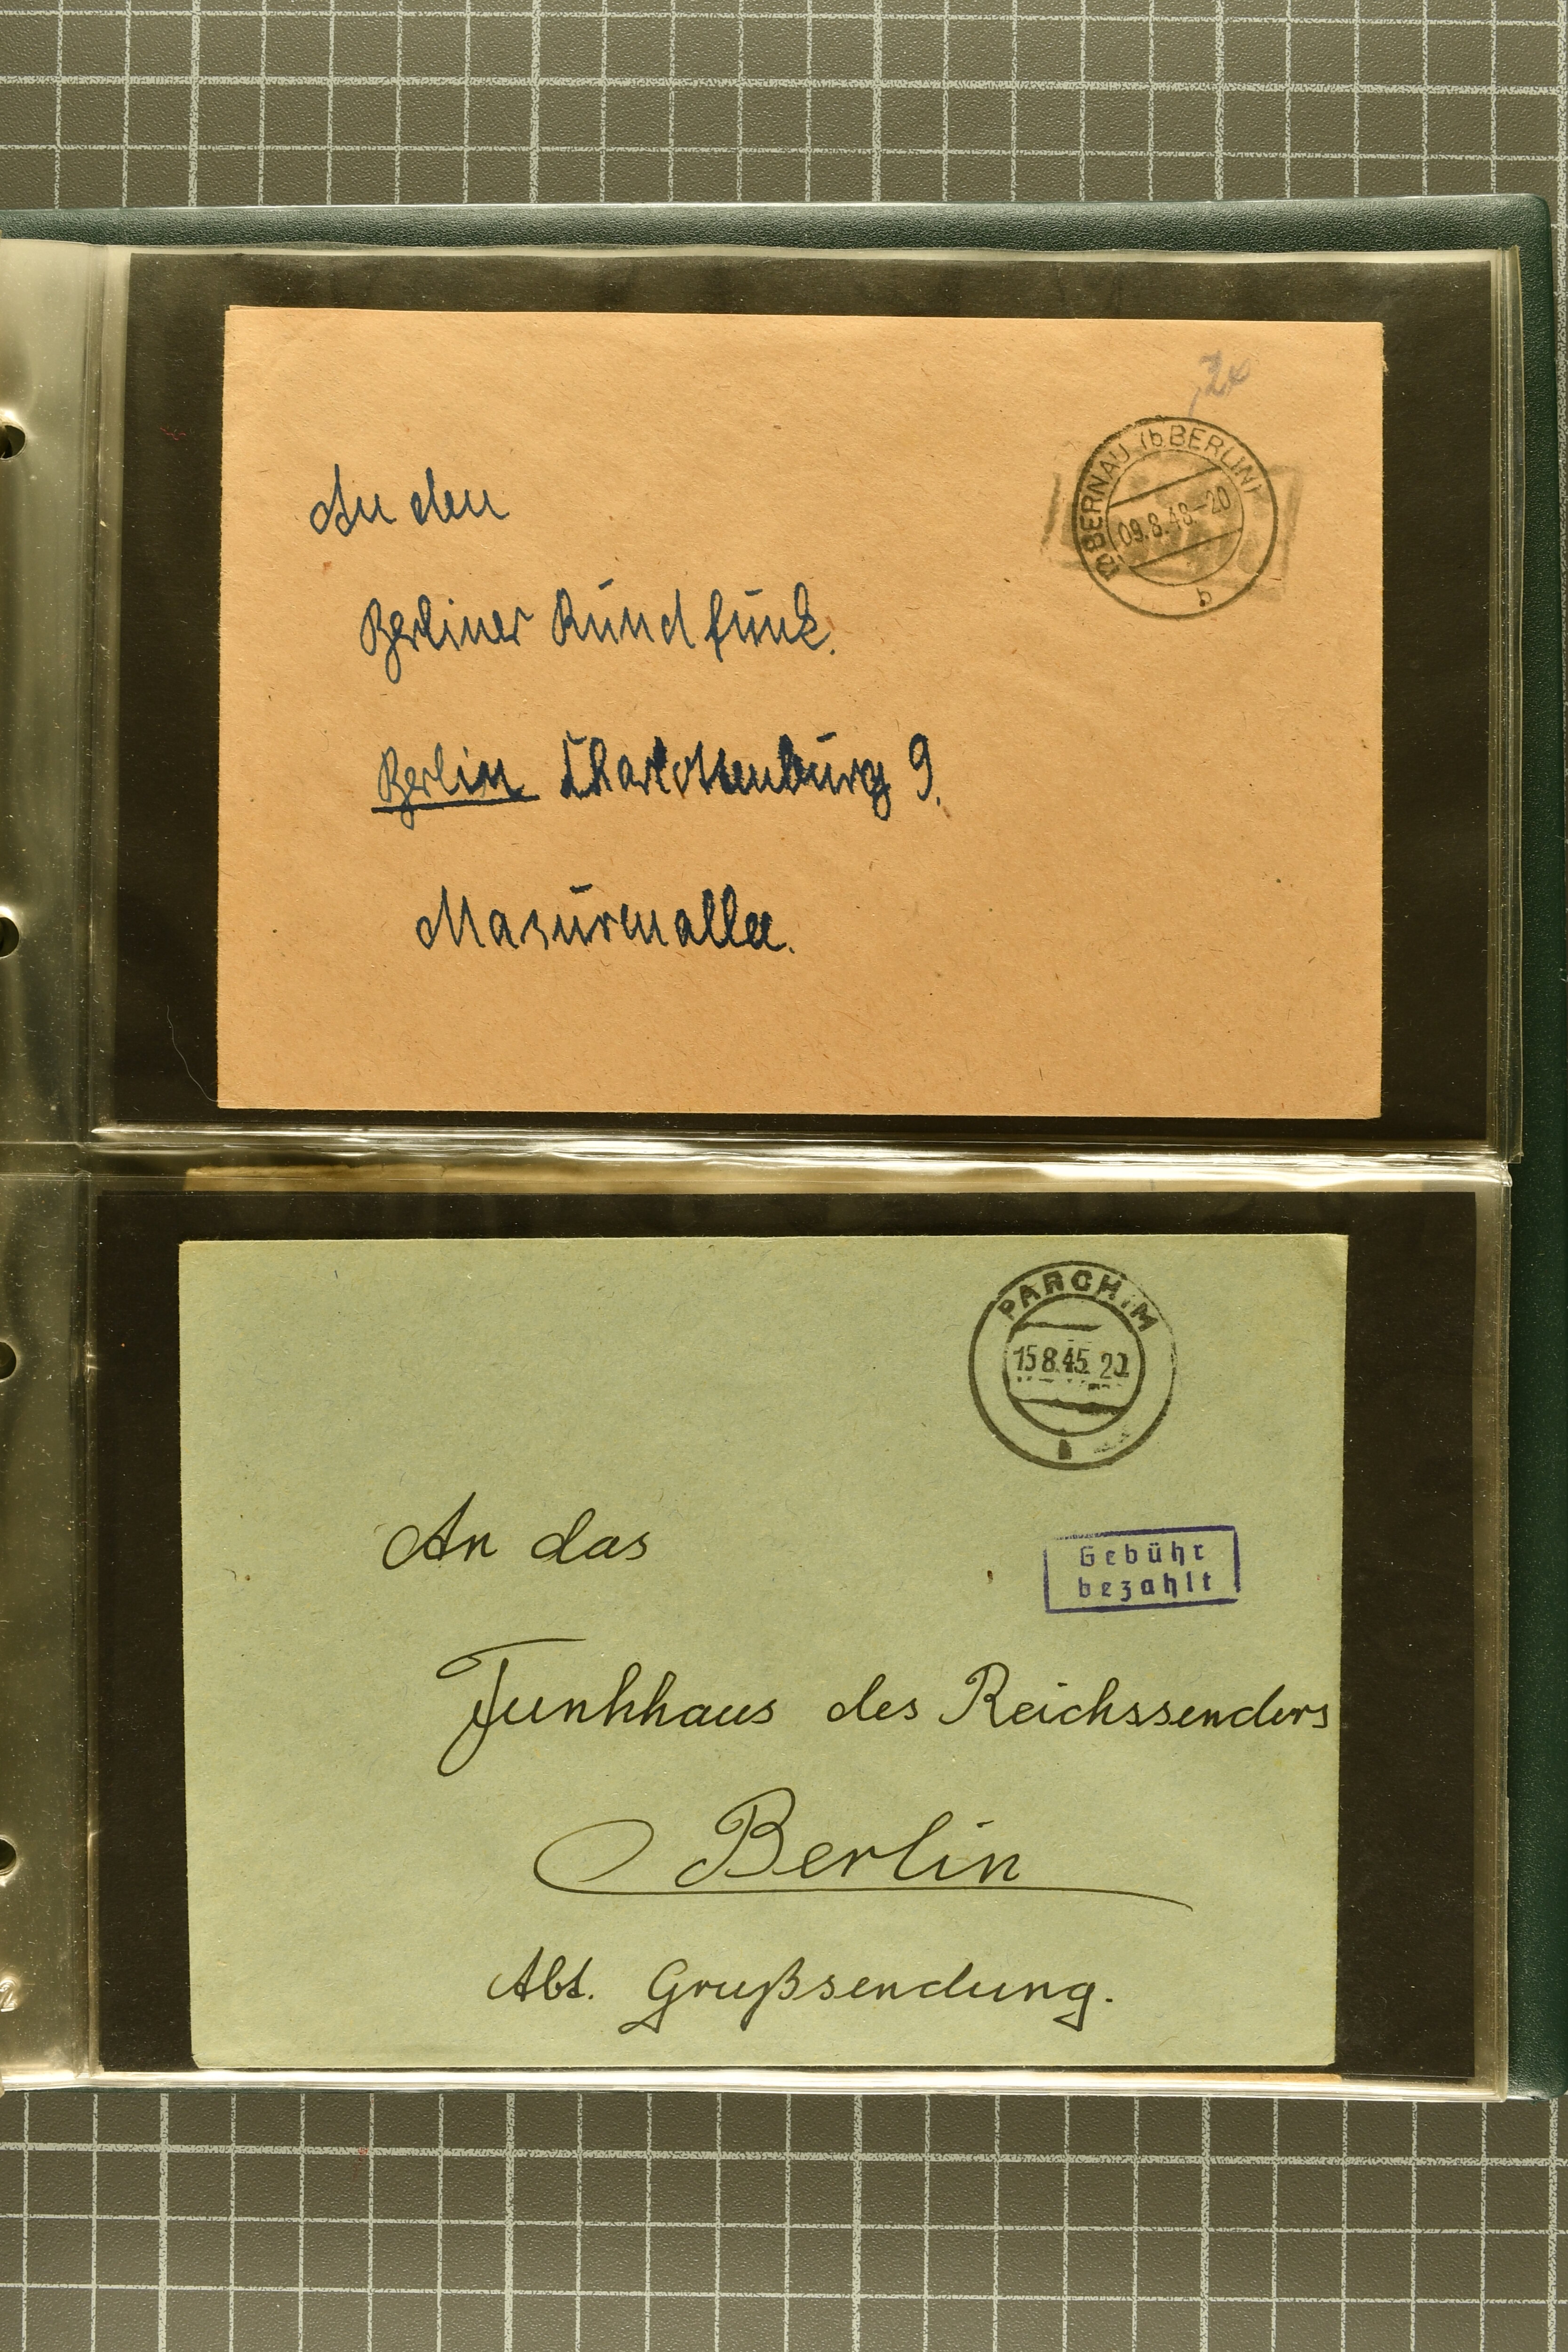 (2) BERNAU (b BERLIN)
09.8.48-20
b
An den
Berliner Rundfunk.
Berlin Charlottenburg 9.
Masurenallee.
PARCHIM
15 8.45. 20
An das
Gebühr
bezahlt
Funkhaus des Reichssenders
Berlin
Abt. Grußsendung.